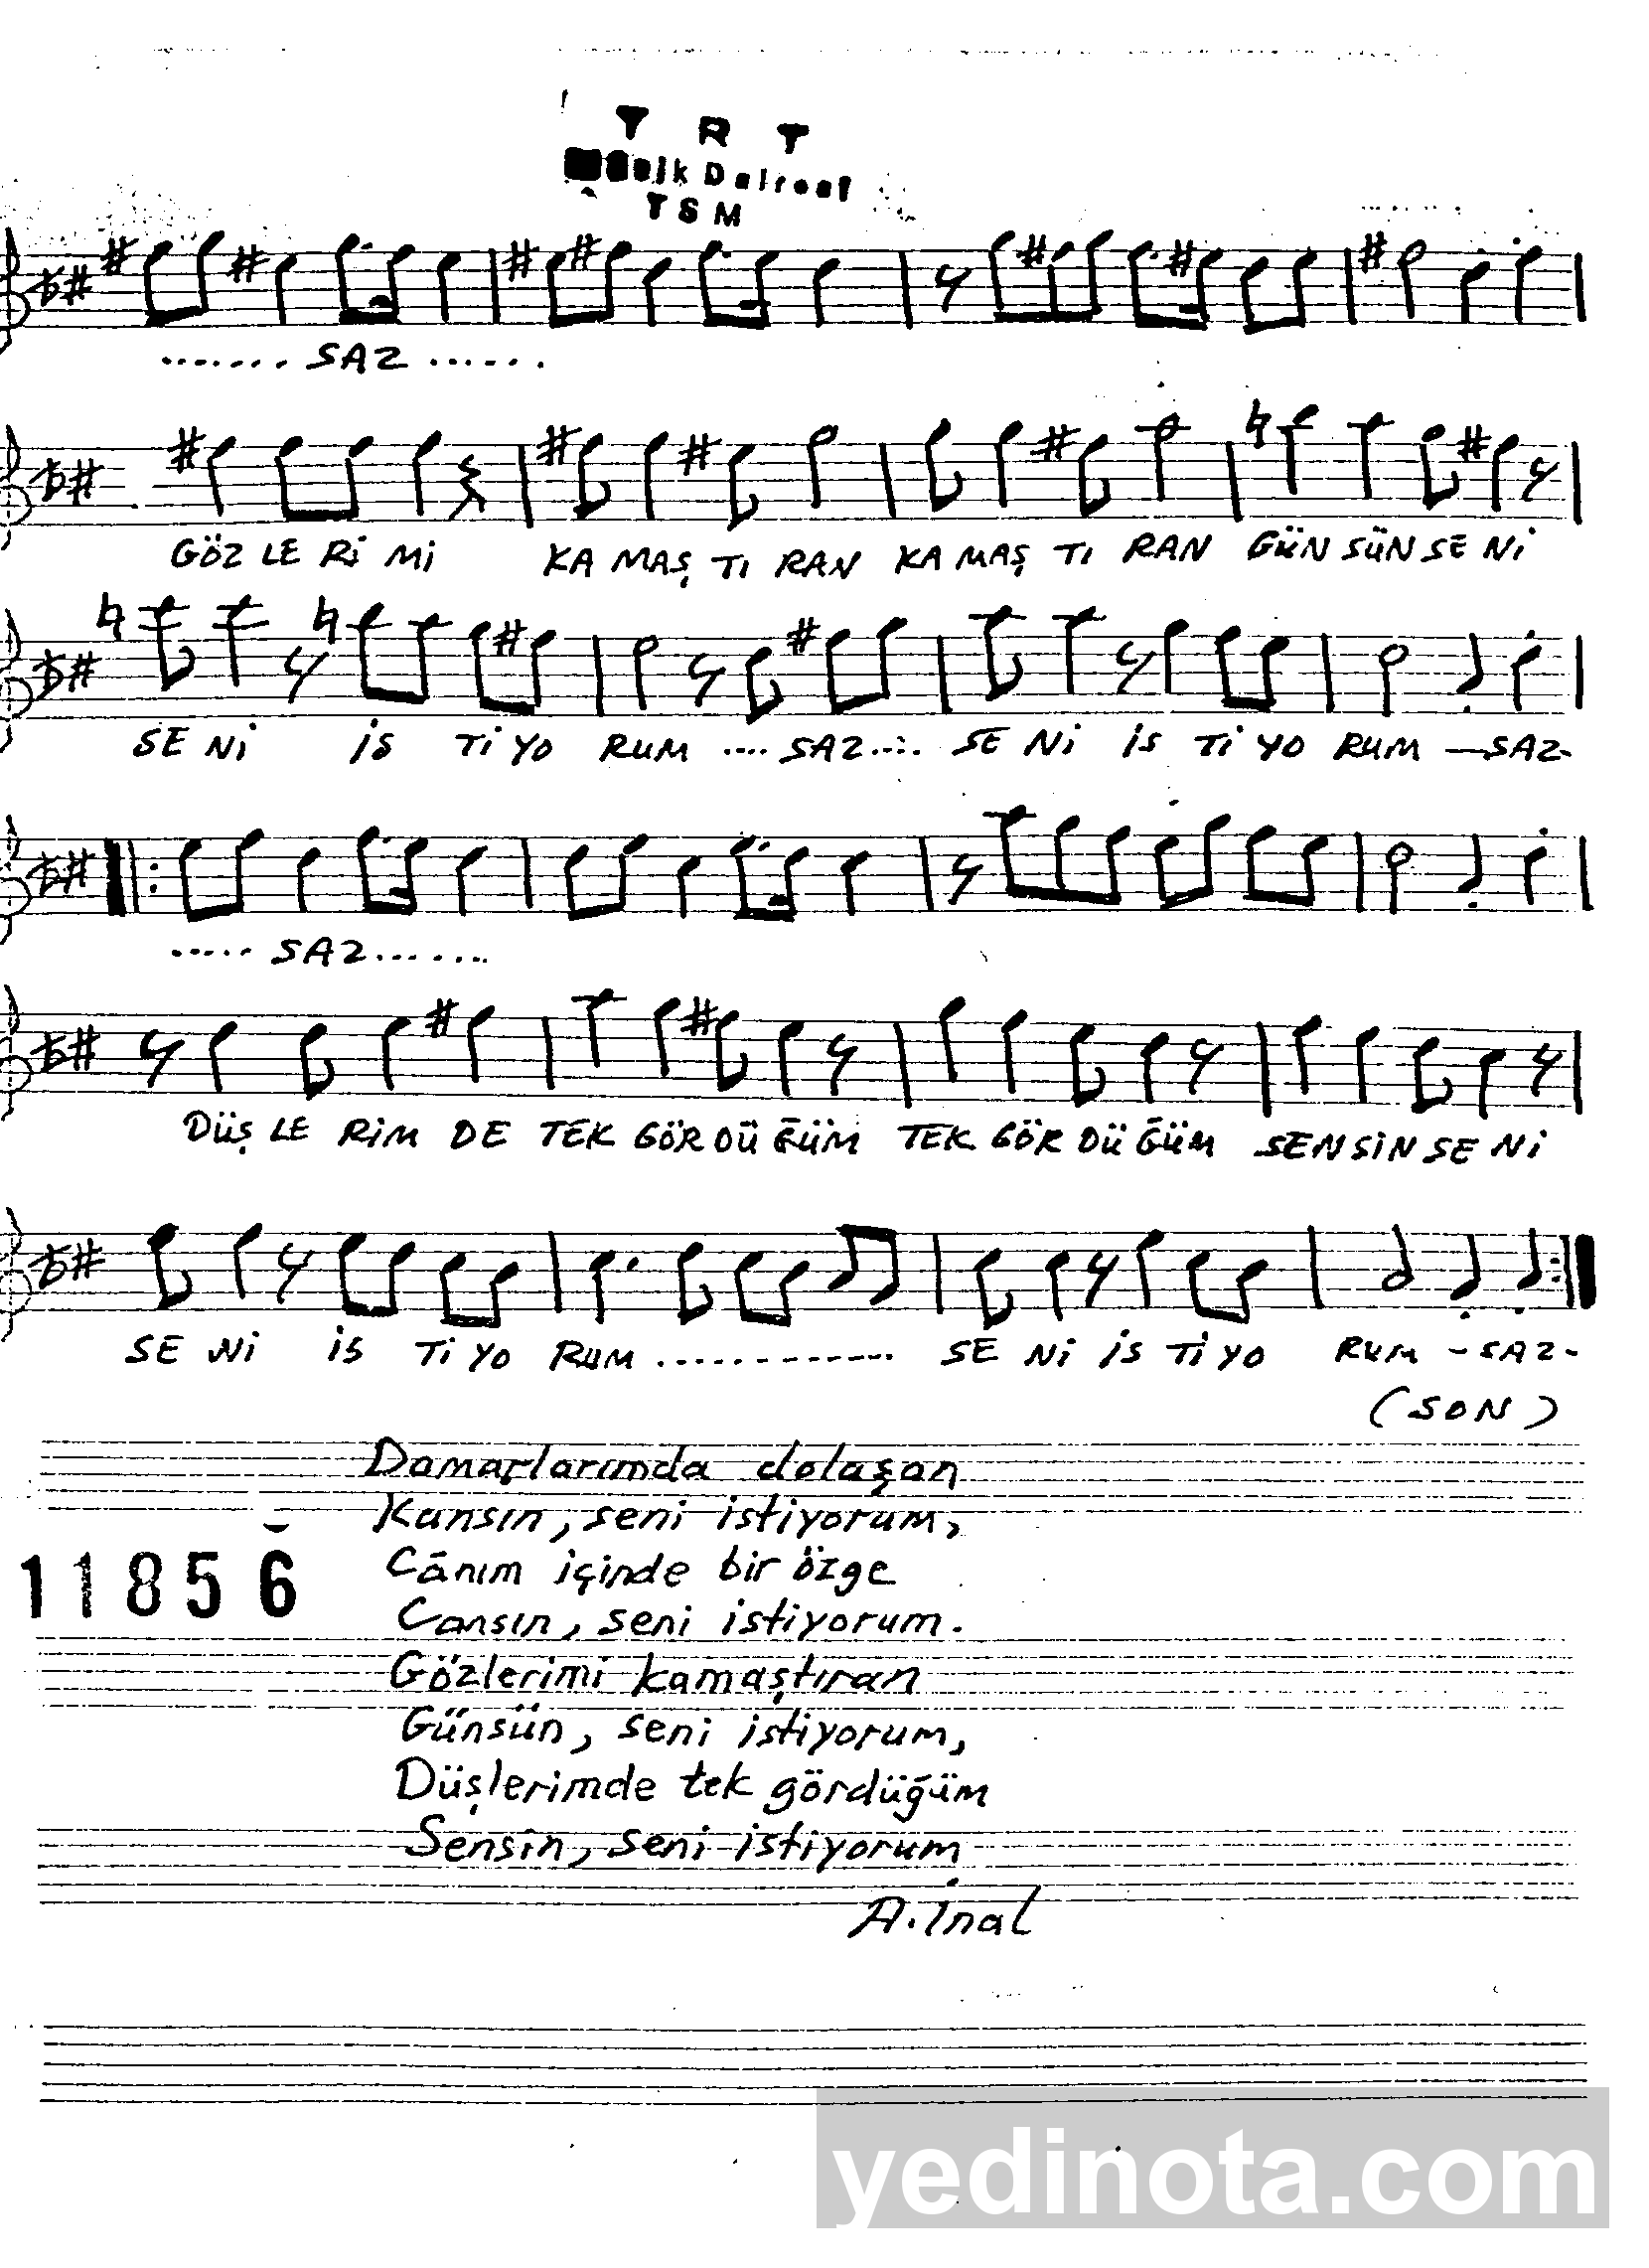 T R T
TSM
....... SAZ ......
GÖZ LE Rİ Mİ KA MAŞ TI RAN KA MAŞ TI RAN GÜN SÜN SE Nİ
SE Nİ İS Tİ YO RUM .... SAZ .... SE Nİ İS Tİ YO RUM —SAZ-
..... SAZ .......
DÜŞ LE RİM DE TEK GÖR DÜ ĞÜM TEK GÖR DÜ ĞÜM SEN SİN SE Nİ
SE Nİ İS Tİ YO RUM .............. SE Nİ İS Tİ YO RUM -SAZ-
(SON)
Damarlarımda dolaşan
Kansın, seni istiyorum,
Cânım içinde bir özge
Cansın, seni istiyorum.
Gözlerimi kamaştıran
Günsün, seni istiyorum,
Düşlerimde tek gördüğüm
Sensin, seni istiyorum
A. İnal
11856
yedinota.com